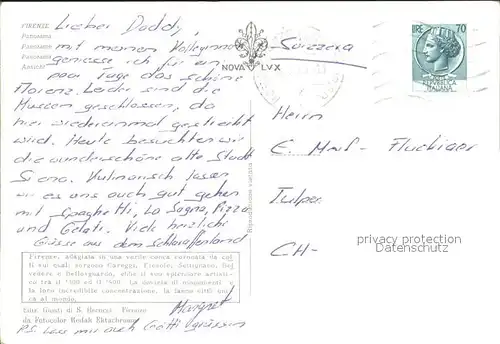 FIRENZE
Panorama
Panorama
Panorama
Lieber Daddy,
mit meinen Kolleginnen
geniesse ich für ein
paar Tage das schöne
Florenz. Leider sind die
Museen geschlossen, da
hier wiedereinmal gestreikt
wird. Heute besuchten wir
die wunderschöne alte Stadt
Siena. Kulinarisch lassen
wir es uns auch gut gehen
mit Spaghetti, La Sagna, Pizza
und Gelati. Viele herzliche
Grüsse aus dem Schlaraffenland
Margret
P.S. Lass mir auch Götti grüssen
Firenze, adagiata in una verde conca coronata da col
li sui quali sorgono Careggi, Fiesole, Settignano, Bel
vedere e Bellosguardo, ebbe il suo splendore artisti-
co tra il '200 ed il '500. La dovizia di monumenti e
la loro incredibile concentrazione, la fanno città uni
ca al mondo.
Ediz. Giusti di S. Becocci Firenze
da Fotocolor Kodak Ektachrome
NOVA LVX
Svizzera
LIRE 70
REPVBBLICA
ITALIANA
Herrn
E. Flückiger
CH-
privacy protection
Datenschutz